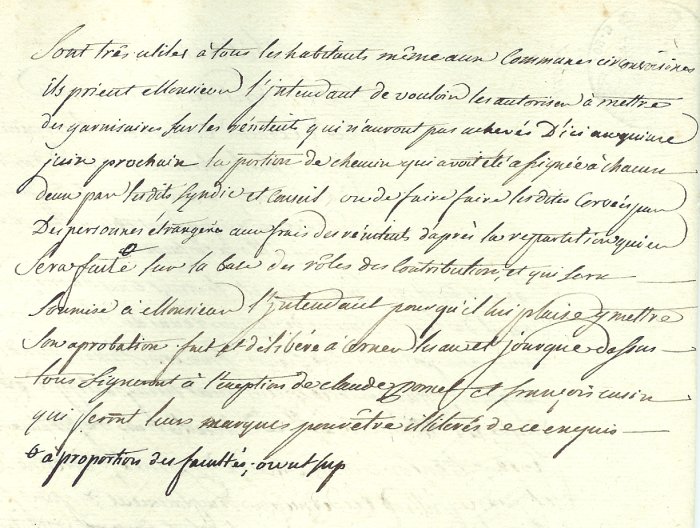 Sont très utiles à tous les habitants même aux Communes circonvoisines
ils prient Monsieur l'Intendant de vouloir les autoriser à mettre
des garnisaires sur les rénitents qui n'auront pas achevés D'ici au quinze
juin prochain la portion de chemin qui avoit été assignée à chacun
deux par lesdits Syndic et Conseil, ou de faire faire lesdites Corvées par
Des personnes étrangères aux frais des rénitents d'après la repartition qui en
Sera faite sur la base des rôles des Contributions, et qui sera
Soumise à Monsieur l'Intendant pour qu'il lui plaise y mettre
Son aprobation. fait et délibéré à Cernex les an et jour que dessus
tous Signeront à l'exception de claude et françois cusin
qui feront leurs marques pour être illiterés de ce enquis
à proportion des facultés; ow ut sup